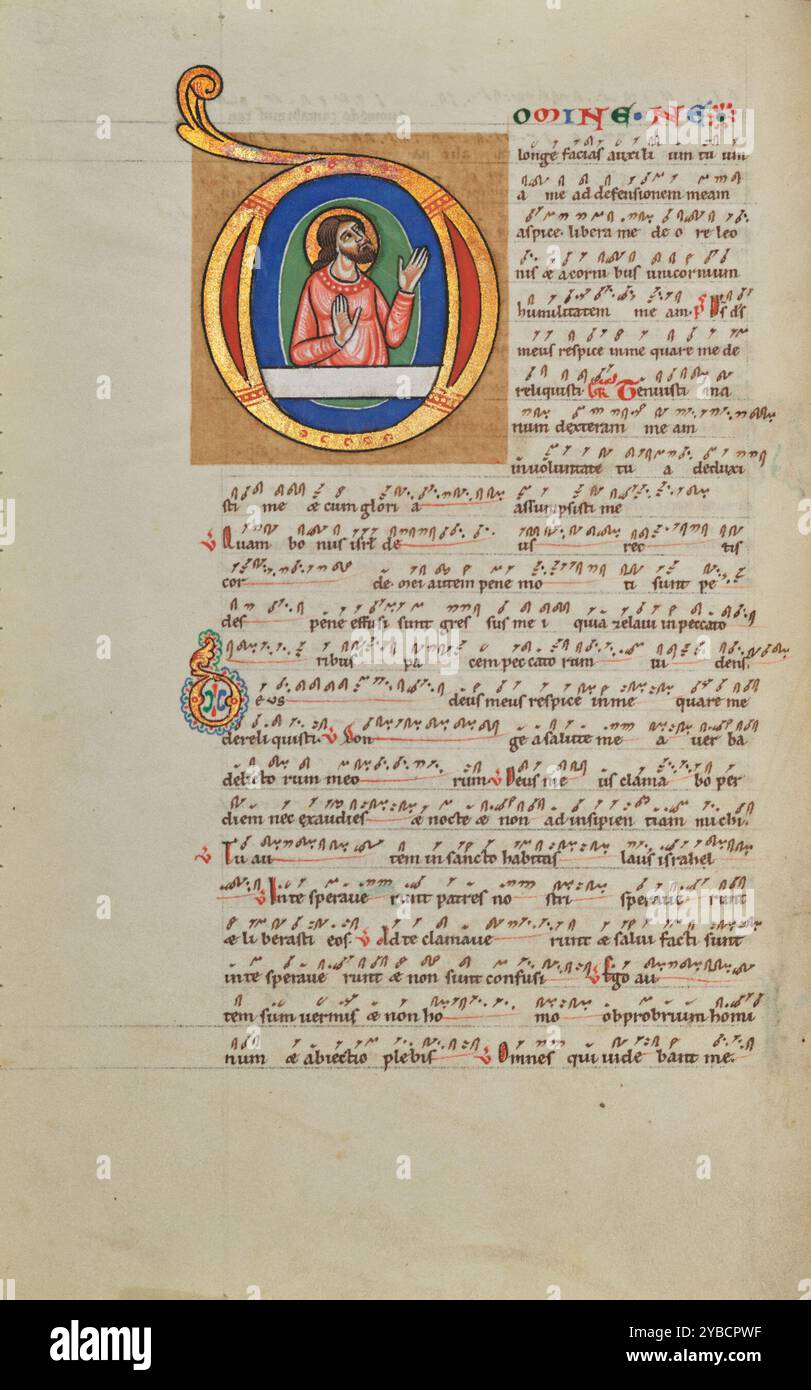 OMINE·NE
longe facias auxili um tu um
a me ad defensionem meam
aspice· libera me de o re leo
nis & a corni bus unicornium
humilitatem me am· Ps Ds ds
meus respice in me quare me de
reliquisti· Tenuisti ma
num dexteram me am
in voluntate tu a deduxi
sti me & cum glori a assumpsisti me
V Quam bo nus isrl de us rec tis
cor de· mei autem pene mo ti sunt pe
des pene effusi sunt gres sus me i quia zelavi in peccato
ribus pa cem pec cato rum vi dens·
D e us deus meus respice in me quare me
dereli quisti· V Lon ge a salute me a ver ba
delicto rum meo rum· V Deus me us clama bo per
diem nec exaudies & nocte & non ad insipien tiam michi·
V Tu au tem in sancto habitas laus israhel
V In te sperave runt patres no stri sperave runt
& li berasti eos· V Ad te clamave runt & salvi facti sunt
in te sperave runt & non sunt confusi V Ego au
tem sum vermis & non ho mo obprobrium homi
num & abiectio plebis V Omnes qui vide bant me·
alamy
Image ID: 2YBCPWF
www.alamy.com